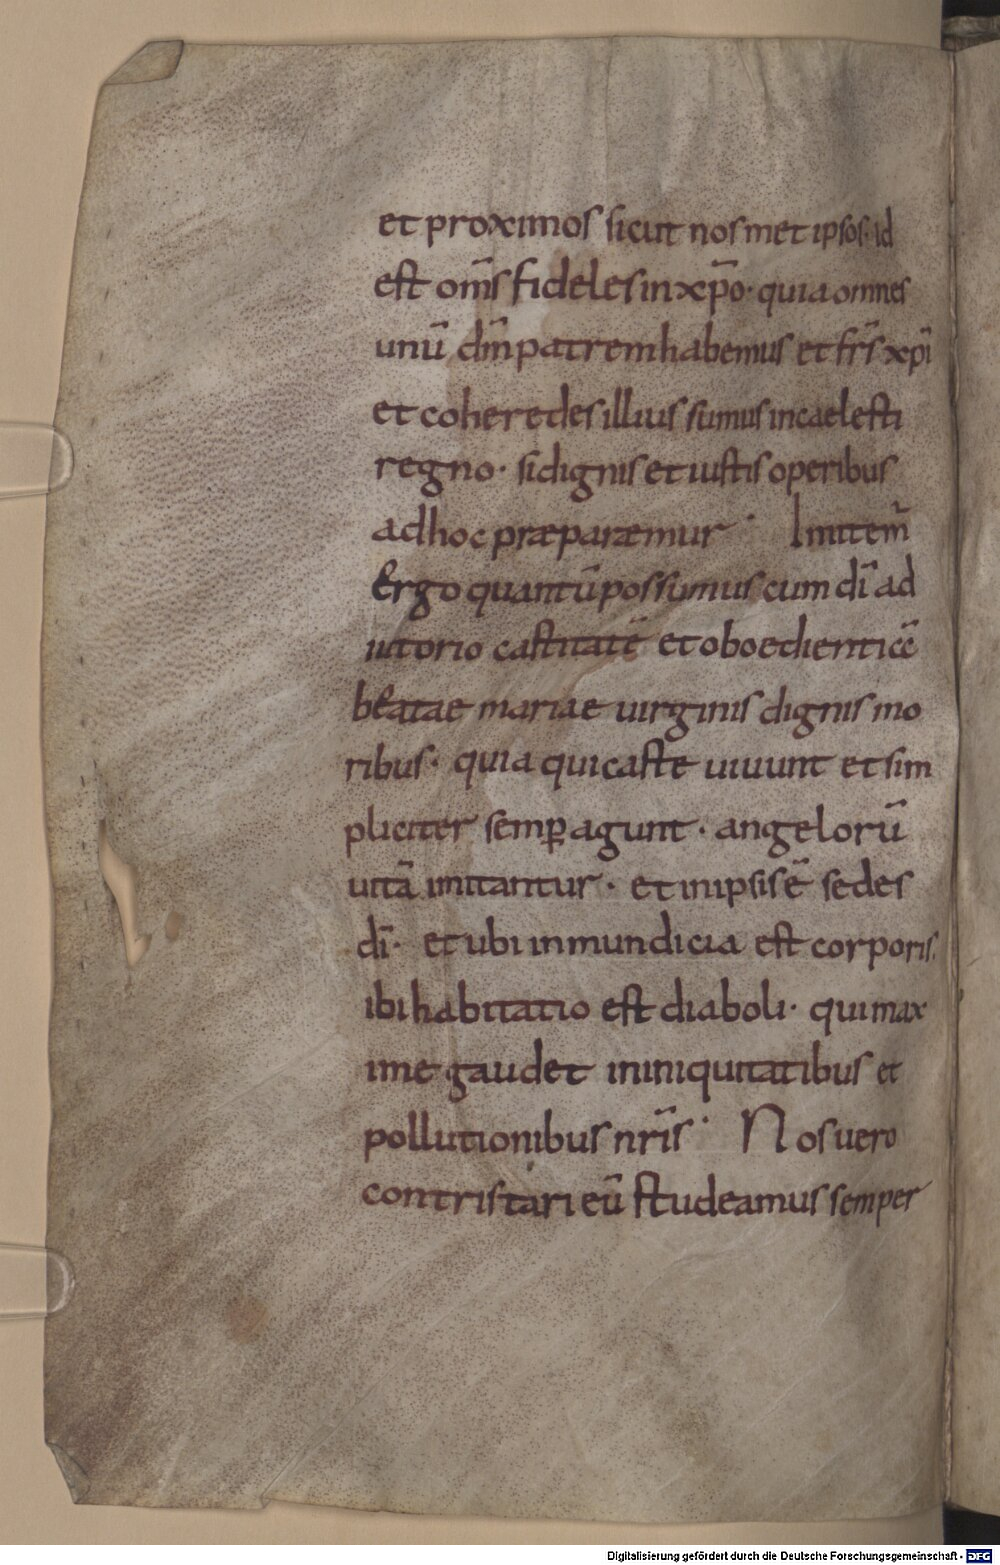 et proximos sicut nosmet ipsos· id
est om̅s fideles in xp̅o· quia omnes
unu̅ dm̅ patrem habemus et fr̅s xp̅i
et coheredes illius sumus in caelesti
regno· si dignis et iustis operibus
ad hoc præparæmur· Imitem̅
Ergo quantu̅ possumus cum di̅ ad
iutorio castitate̅ et oboedientia̅
beatae mariae uirginis dignis mo
ribus· quia qui caste uiuunt et sim
pliciter semꝑ agunt· angeloru̅
uita̅ imitantur· et in ipsis e̅ sedes
di̅· et ubi inmundicia est corporis·
ibi habitatio est diaboli· qui max
ime gaudet in iniquitatibus et
pollutionibus nr̅is· Nos uero
contristari eu̅ studeamus semper
Digitalisierung gefördert durch die Deutsche Forschungsgemeinschaft - DFG